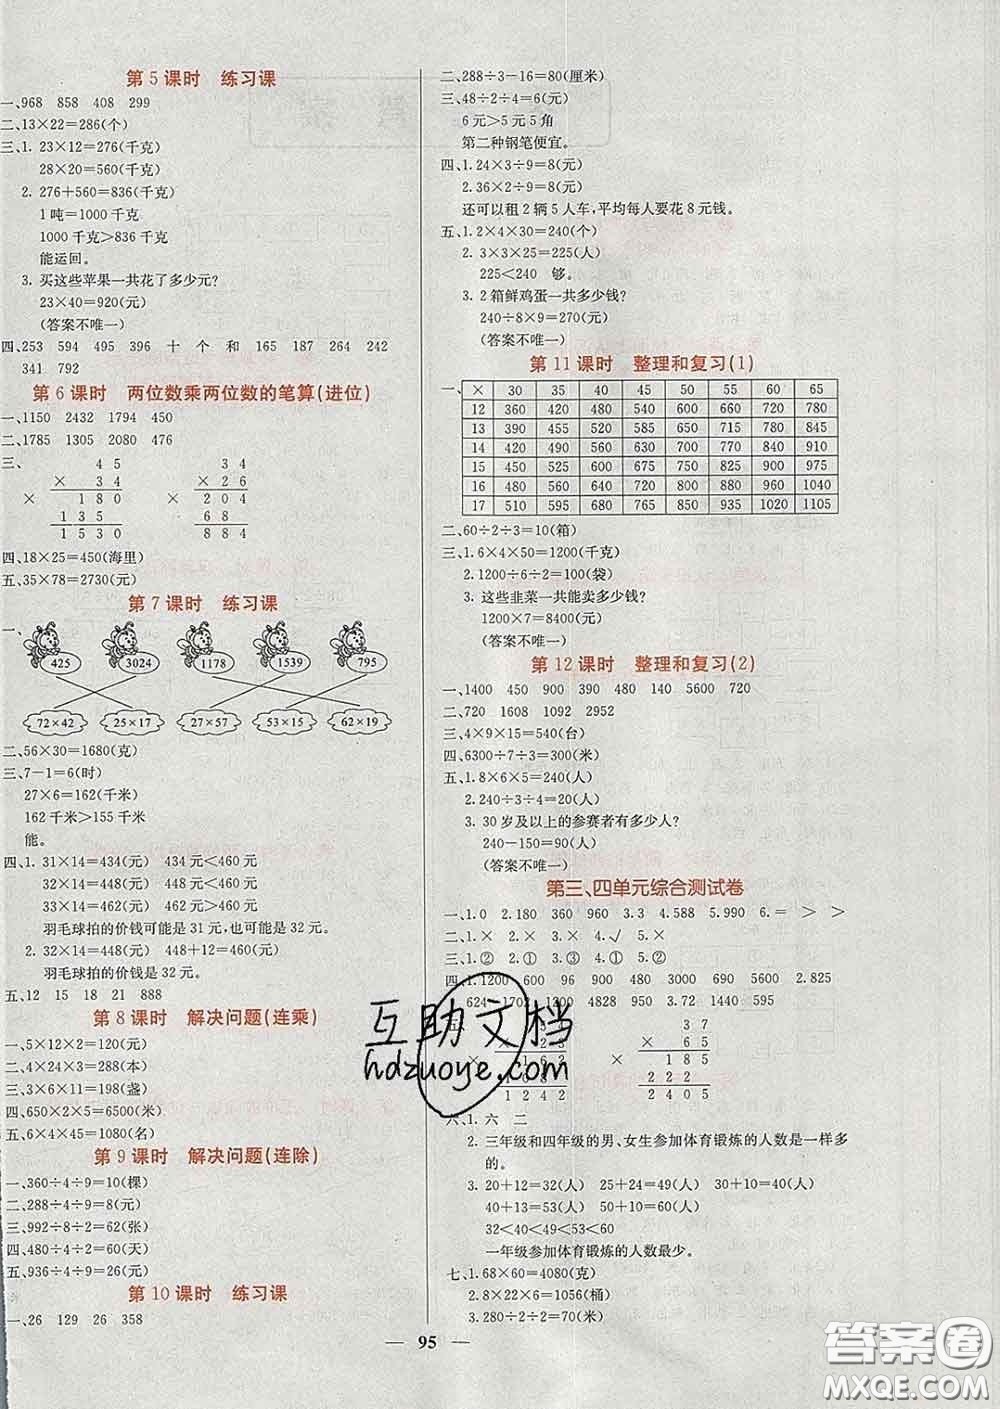 第5课时　练习课
一、968　858　408　299
二、13×22=286(个)
三、1. 23×12=276(千克)
28×20=560(千克)
2. 276+560=836(千克)
1吨=1000千克
1000千克>836千克
能运回。
3. 买这些苹果一共花了多少元?
23×40=920(元)
(答案不唯一)
四、253　594　495　396　十　个　和　165　187　264　242
341　792
第6课时　两位数乘两位数的笔算(进位)
一、1150　2432　1794　450
二、1785　1305　2080　476
三、
4 5　　3 4
× 3 4　　× 2 6
× 1 8 0　　× 2 0 4
1 3 5　　6 8
1 5 3 0　　8 8 4
四、18×25=450(海里)
五、35×78=2730(元)
第7课时　练习课
一、
425　3024　1178　1539　795
72×42　25×17　27×57　53×15　62×19
二、56×30=1680(克)
三、7-1=6(时)
27×6=162(千米)
162千米>155千米
能。
四、1. 31×14=434(元)　434元<460元
32×14=448(元)　448元<460元
33×14=462(元)　462元>460元
羽毛球拍的价钱可能是31元,也可能是32元。
2. 32×14=448(元)　448+12=460(元)
羽毛球拍的价钱是32元。
五、12　15　18　21　888
第8课时　解决问题(连乘)
一、5×12×2=120(元)
二、4×24×3=288(本)
三、3×6×11=198(盏)
四、650×2×5=6500(米)
五、6×4×45=1080(名)
第9课时　解决问题(连除)
一、360÷4÷9=10(棵)
二、288÷4÷9=8(元)
三、992÷8÷2=62(张)
四、480÷4÷2=60(天)
五、936÷4÷9=26(元)
第10课时　练习课
一、26　129　26　358
二、288÷3-16=80(厘米)
三、48÷2÷4=6(元)
6元>5元5角
第二种钢笔便宜。
四、1. 24×3÷9=8(元)
2. 36×2÷9=8(元)
还可以租2辆5人车,平均每人要花8元钱。
五、1. 2×4×30=240(个)
2. 3×3×25=225(人)
225<240　够。
3. 2箱鲜鸡蛋一共多少钱?
240÷8×9=270(元)
(答案不唯一)
第11课时　整理和复习(1)
一、
×　30　35　40　45　50　55　60　65
12　360　420　480　540　600　660　720　780
13　390　455　520　585　650　715　780　845
14　420　490　560　630　700　770　840　910
15　450　525　600　675　750　825　900　975
16　480　560　640　720　800　880　960　1040
17　510　595　680　765　850　935　1020　1105
二、60÷2÷3=10(箱)
三、1. 6×4×50=1200(千克)
2. 1200÷6÷2=100(袋)
3. 这些韭菜一共能卖多少钱?
1200×7=8400(元)
(答案不唯一)
第12课时　整理和复习(2)
一、1400　450　900　390　480　140　5600　720
二、720　1608　1092　2952
三、4×9×15=540(台)
四、6300÷7÷3=300(米)
五、1. 8×6×5=240(人)
2. 240÷3÷4=20(人)
3. 30岁及以上的参赛者有多少人?
240-150=90(人)
(答案不唯一)
第三、四单元综合测试卷
一、1. 0　2. 180　360　960　3. 3　4. 588　5. 990　6. =　>　>
二、1. ×　2. ×　3. ×　4. √　5. ×
三、1. ②　2. ①　3. ③　4. ①　5. ②
四、1. 1200　600　96　900　480　3000　690　5600　2. 825
624　1702　1200　4828　950　3. 72　1440　595
五、
5 4　　3 7
2 3　　× 6 5
1 6 2　　× 1 8 5
1 0 8　　2 2 2
1 2 4 2　　2 4 0 5
六、1. 六　二
2. 三年级和四年级的男、女生参加体育锻炼的人数是一样多
的。
3. 20+12=32(人)　25+24=49(人)　15+36=51(人)
40+13=53(人)　50+10=60(人)
32<49<51<53<60
一年级参加体育锻炼的人数最少。
七、1. 68×60=4080(克)
2. 8×22×6=1056(桶)
3. 280÷2÷2=70(米)
— 95 —
互助文档
hdzuoye.com
答案圈
MXQE.COM